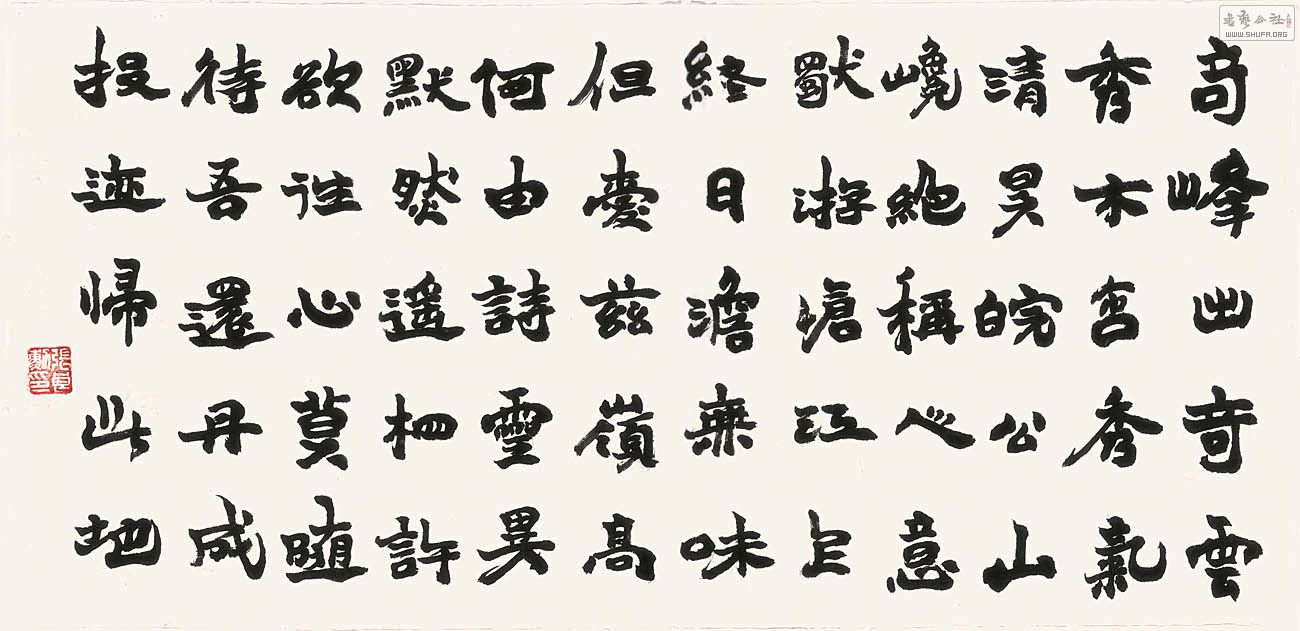 奇峰出奇雲
秀木含秀氣
清昊皖公山
巉絶稱心意
獨游滄江上
終日澹無味
但愛兹嶺高
何由詩靈異
默然遥相許
欲往心莫隨
待吾還丹成
投迹歸此地
書藝公社
WWW.SHUFA.ORG